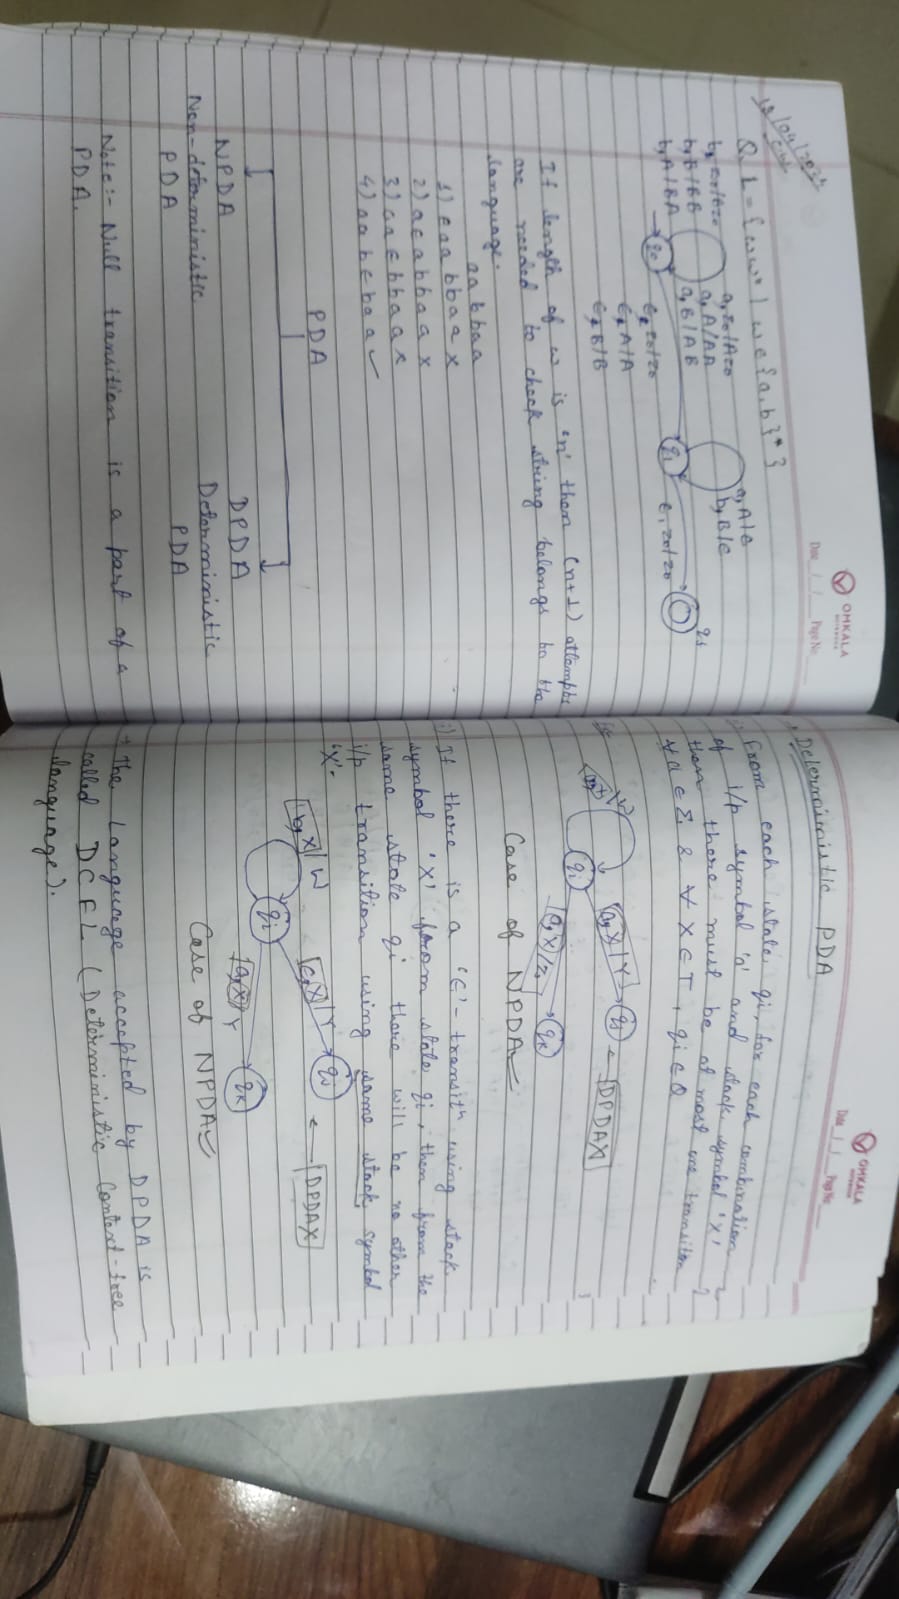 OMKALA
NOTEBOOK
Date__/__/____ Page No:____
18/04/2024
C.W
Q. L = {ωωʳ | ω ∈ {a,b}*}
b, z0/Bz0
b, B/BB
b, A/BA
a, z0/Az0
a, A/AA
a, B/AB
a, A/ϵ
b, B/ϵ
q0
q1
qf
ϵ, z0/z0
ϵ, z0/z0
ϵ, A/A
ϵ, B/B
If length of ω is 'n' then (n+1) attempts
are needed to check string belongs to the
language.
aabbaa
1) ϵaabbaa x
2) aϵabbaa x
3) aaϵbbaa x
4) aabϵbaa ✓
PDA
NPDA
Non-deterministic
PDA
DPDA
Deterministic
PDA
Note:- Null transition is a part of a
PDA.
OMKALA
NOTEBOOK
Date__/__/____ Page No:____
Deterministic PDA
From each state qi, for each combination
of i/p symbol 'a' and stack symbol 'X'
then there must be at most one transition
∀ a ∈ Σ & ∀ X ∈ T, qi ∈ Q
a, X/W
a, X/Y
qj
DPDA X
qi
a, X/Z
qk
Case of NPDA ✓
ii) If there is a 'ϵ'-transitⁿ using stack
symbol 'X' from state qi, then from the
same state qi there will be no other
i/p transition using same stack symbol
'X'-
b, X/W
ϵ, X/Y
qj
DPDA X
qi
a, X/Y
qk
Case of NPDA ✓
→ The Language accepted by DPDA is
called DCFL (Deterministic Context-free
language).